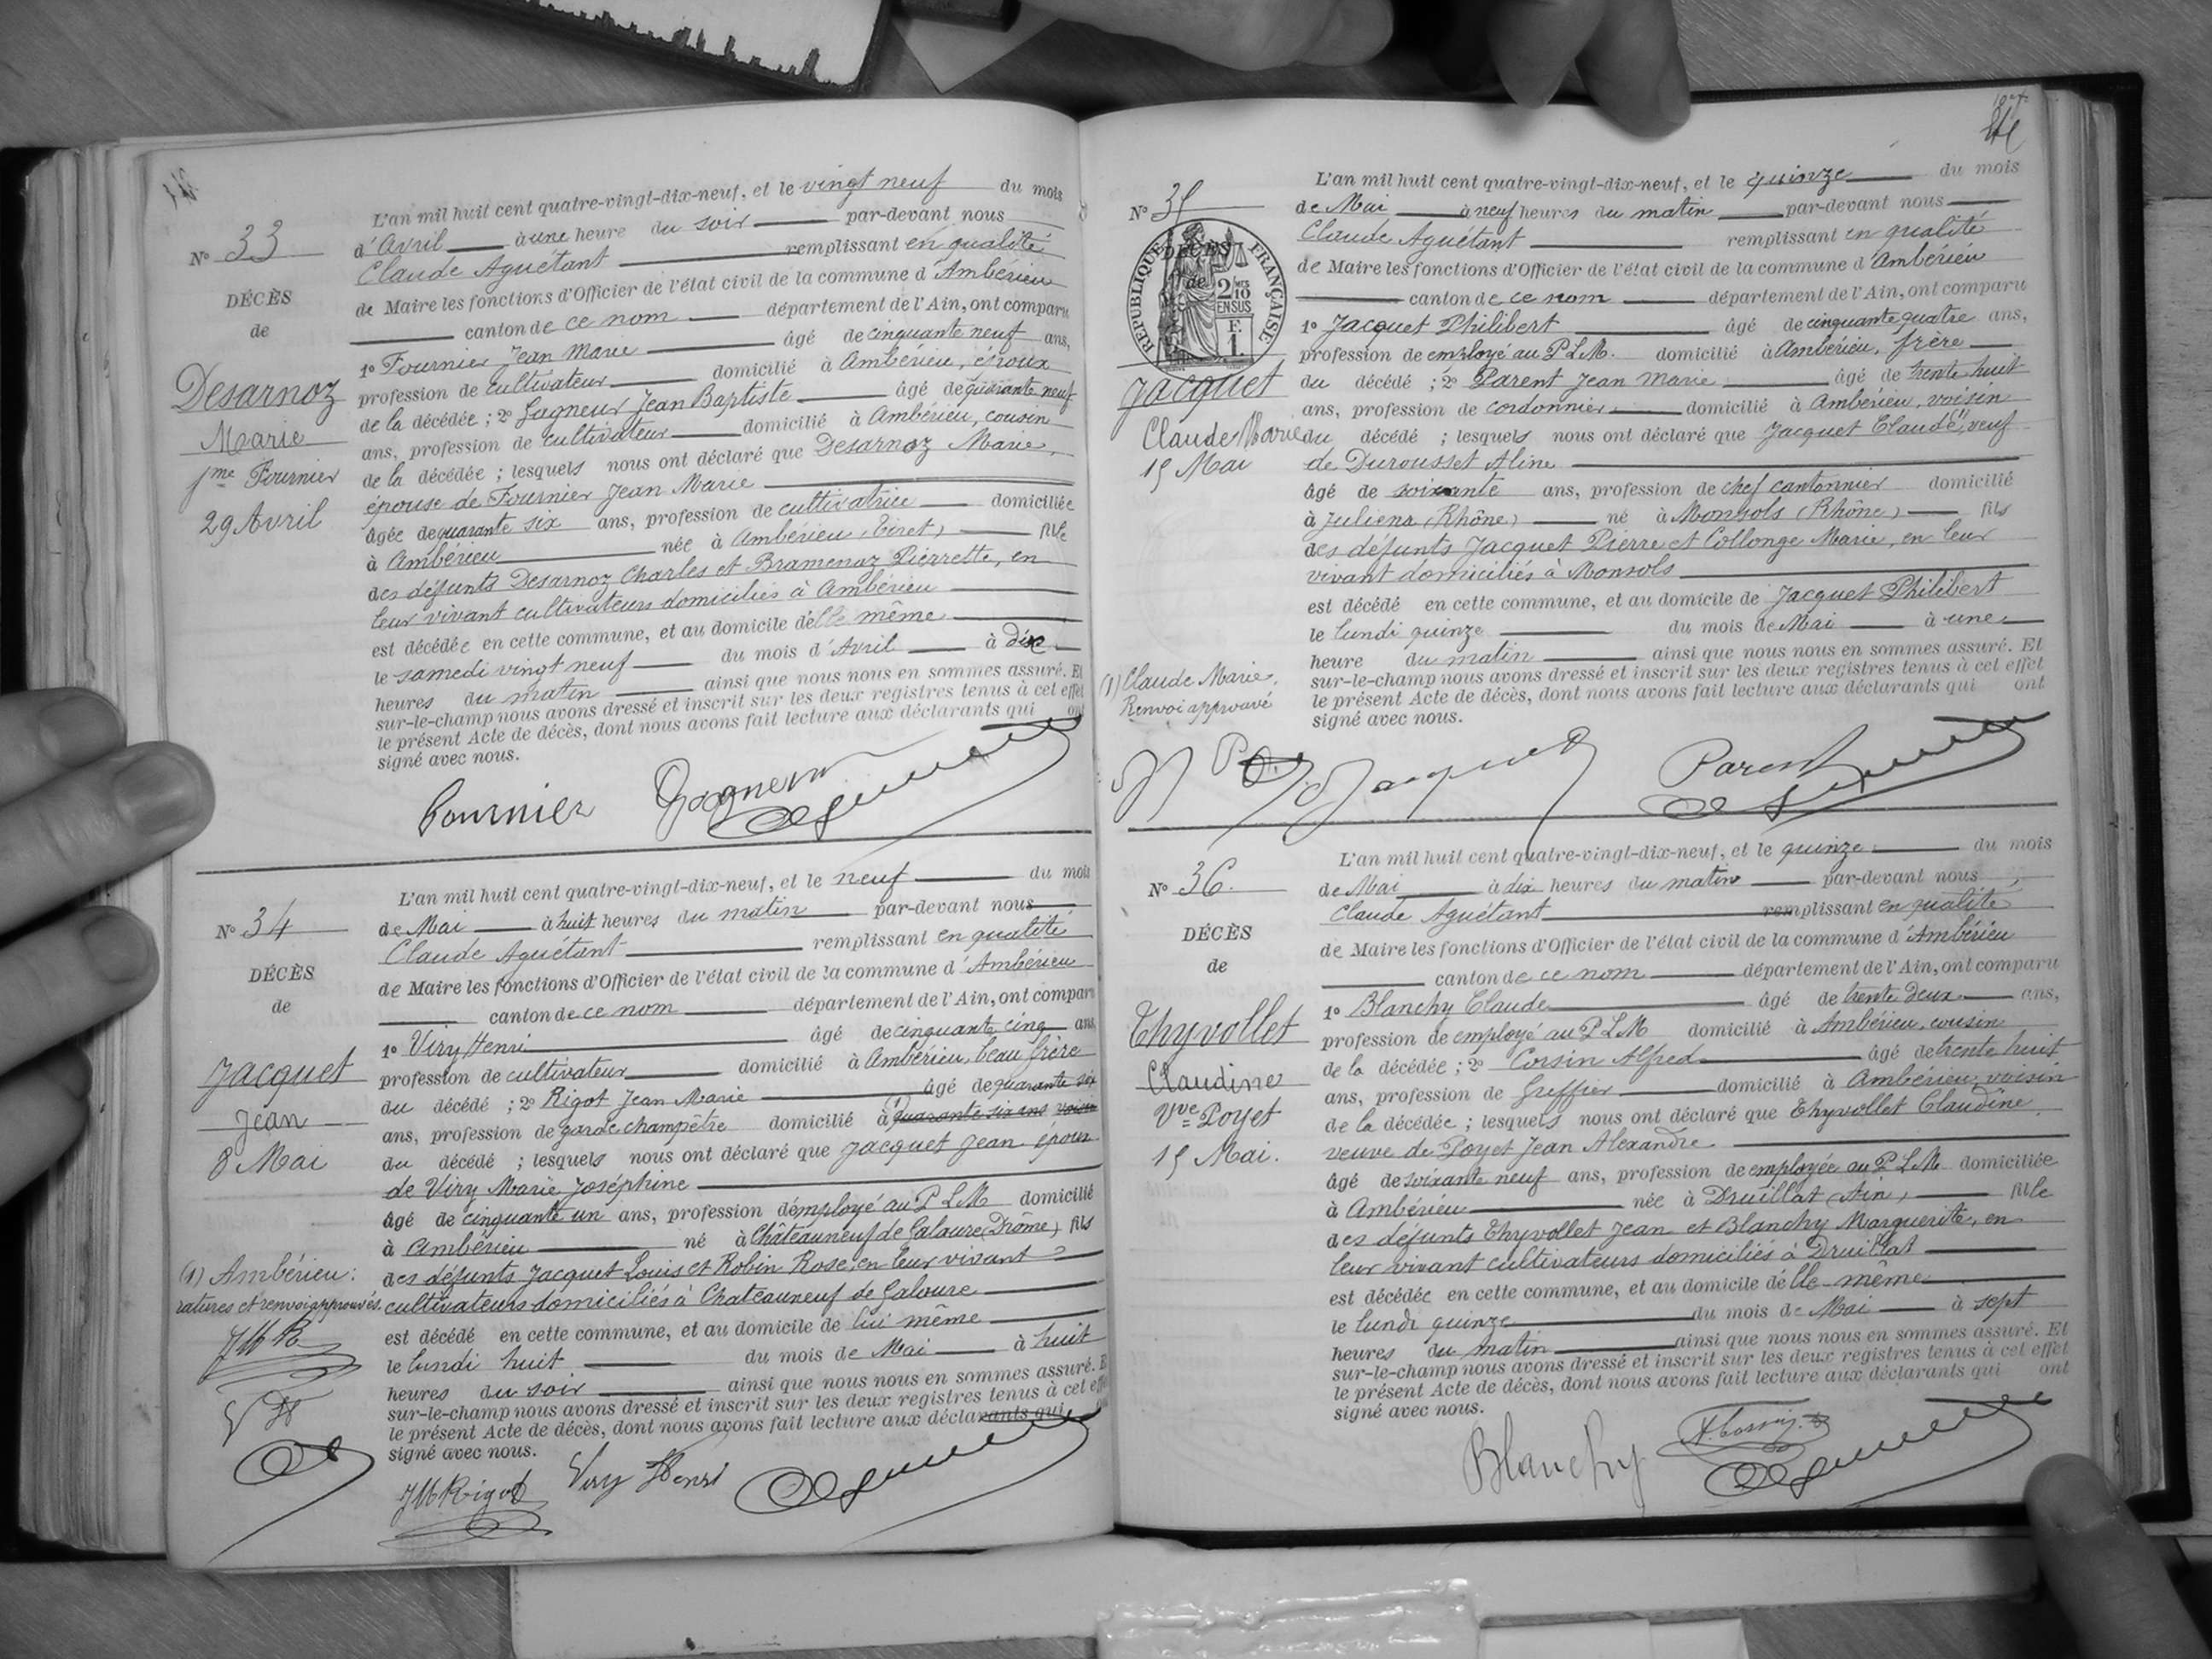 N° 33
DÉCÈS
de
Desarnoz
Marie
fme Fournier
29 Avril
L'an mil huit cent quatre-vingt-dix-neuf, et le vingt neuf du mois
d'Avril à une heure du soir par-devant nous
Claude Aguétant remplissant en qualité
de Maire les fonctions d'Officier de l'état civil de la commune d'Ambérieu
canton de ce nom département de l'Ain, ont comparu
1° Fournier Jean Marie âgé de cinquante neuf ans,
profession de cultivateur domicilié à Ambérieu, époux
de la décédée ; 2° Gagneur Jean Baptiste âgé de quarante neuf
ans, profession de cultivateur domicilié à Ambérieu, cousin
de la décédée ; lesquels nous ont déclaré que Desarnoz Marie,
épouse de Fournier Jean Marie
âgée de quarante six ans, profession de cultivatrice domiciliée
à Ambérieu née à Ambérieu (Tiret) fille
des défunts Desarnoz Charles et Bramenoz Pierrette, en
leur vivant cultivateurs domiciliés à Ambérieu
est décédée en cette commune, et au domicile d'elle même
le samedi vingt neuf du mois d'Avril à dix
heures du matin ainsi que nous nous en sommes assuré. Et
sur-le-champ nous avons dressé et inscrit sur les deux registres tenus à cet effet
le présent Acte de décès, dont nous avons fait lecture aux déclarants qui ont
signé avec nous.
Fournier Gagneur
N° 34
DÉCÈS
de
Jacquet
Jean
8 Mai
(1) Ambérieu :
ratures et renvoi approuvés
JMR
VH
L'an mil huit cent quatre-vingt-dix-neuf, et le neuf du mois
de Mai à huit heures du matin par-devant nous
Claude Aguétant remplissant en qualité
de Maire les fonctions d'Officier de l'état civil de la commune d'Ambérieu
canton de ce nom département de l'Ain, ont comparu
1° Viry Henri âgé de cinquante cinq ans
profession de cultivateur domicilié à Ambérieu, beau frère
du décédé ; 2° Rigot Jean Marie âgé de quarante six
ans, profession de garde champêtre domicilié à (1) quarante six ans voisin
du décédé ; lesquels nous ont déclaré que Jacquet Jean époux
de Viry Marie Joséphine
âgé de cinquante un ans, profession d'employé au P L M domicilié
à Ambérieu né à Châteauneuf de Galaure (Drôme) fils
des défunts Jacquet Louis et Robin Rose, en leur vivant
cultivateurs domiciliés à Chateauneuf de Galoure
est décédé en cette commune, et au domicile de lui même
le lundi huit du mois de Mai à huit
heures du soir ainsi que nous nous en sommes assuré. Et
sur-le-champ nous avons dressé et inscrit sur les deux registres tenus à cet effet
le présent Acte de décès, dont nous avons fait lecture aux déclarants qui
signé avec nous.
JM Rigot Viry Henri
N° 35
DÉCÈS
de
RÉPUBLIQUE FRANÇAISE
2/10 EN SUS
F. 1.
Jacquet
Claude Marie
15 Mai
(1) Claude Marie.
Renvoi approuvé
L'an mil huit cent quatre-vingt-dix-neuf, et le quinze du mois
de Mai à neuf heures du matin par-devant nous
Claude Aguétant remplissant en qualité
de Maire les fonctions d'Officier de l'état civil de la commune d'Ambérieu
canton de ce nom département de l'Ain, ont comparu
1° Jacquet Philibert âgé de cinquante quatre ans,
profession de employé au P L M. domicilié à Ambérieu, frère
du décédé ; 2° Parent Jean Marie âgé de trente huit
ans, profession de cordonnier domicilié à Ambérieu, voisin
du décédé ; lesquels nous ont déclaré que Jacquet Claude (1), veuf
de Durousset Aline
âgé de soixante ans, profession de chef cantonnier domicilié
à Juliena (Rhône) né à Monsols (Rhône) fils
des défunts Jacquet Pierre et Collonge Marie, en leur
vivant domiciliés à Monsols
est décédé en cette commune, et au domicile de Jacquet Philibert
le lundi quinze du mois de Mai à une
heure du matin ainsi que nous nous en sommes assuré. Et
sur-le-champ nous avons dressé et inscrit sur les deux registres tenus à cet effet
le présent Acte de décès, dont nous avons fait lecture aux déclarants qui ont
signé avec nous.
Jacquet Parent
N° 36.
DÉCÈS
de
Thyvollet
Claudine
Vve Poyet
15 Mai.
L'an mil huit cent quatre-vingt-dix-neuf, et le quinze du mois
de Mai à dix heures du matin par-devant nous
Claude Aguétant remplissant en qualité
de Maire les fonctions d'Officier de l'état civil de la commune d'Ambérieu
canton de ce nom département de l'Ain, ont comparu
1° Blanchy Claude âgé de trente deux ans,
profession de employé au P L M domicilié à Ambérieu, cousin
de la décédée ; 2° Corsin Alfred âgé de trente huit
ans, profession de Greffier domicilié à Ambérieu, voisin
de la décédée ; lesquels nous ont déclaré que Thyvollet Claudine
veuve de Poyet Jean Alexandre
âgé de soixante neuf ans, profession de employée au P L M domiciliée
à Ambérieu née à Druillat (Ain) fille
des défunts Thyvollet Jean et Blanchy Marguerite, en
leur vivant cultivateurs domiciliés à Druillat
est décédée en cette commune, et au domicile d'elle-même
le lundi quinze du mois de Mai à sept
heures du matin ainsi que nous nous en sommes assuré. Et
sur-le-champ nous avons dressé et inscrit sur les deux registres tenus à cet effet
le présent Acte de décès, dont nous avons fait lecture aux déclarants qui ont
signé avec nous.
Blanchy A. Corsin